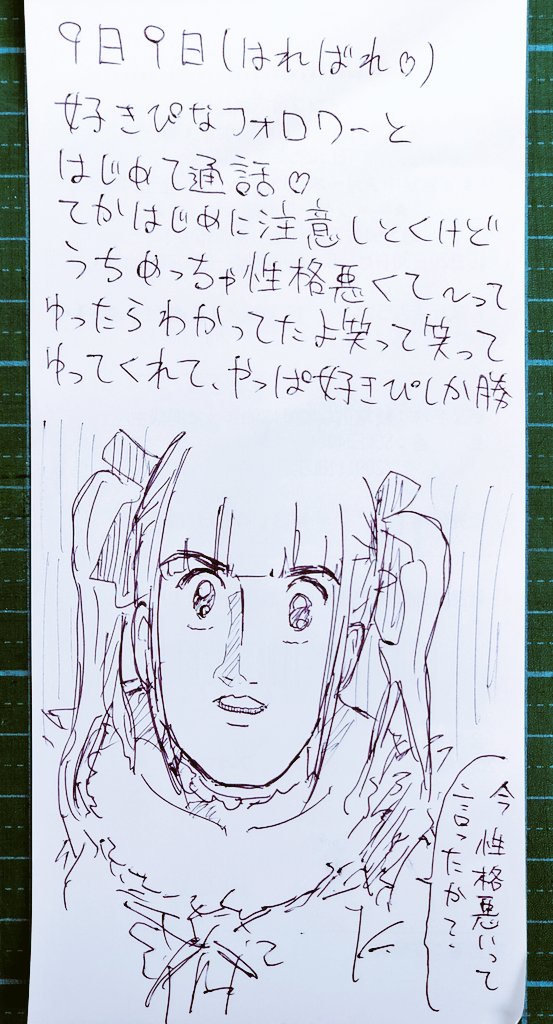 9日9日(はればれ♡)
好きぴなフォロワーと
はじめて通話♡
てかはじめに注意しとくけど
うちめっちゃ性格悪くて〜って
ゆったらわかってたよ笑って笑って
ゆってくれて、やっぱ好きぴしか勝
今性格悪いって
言ったかて?